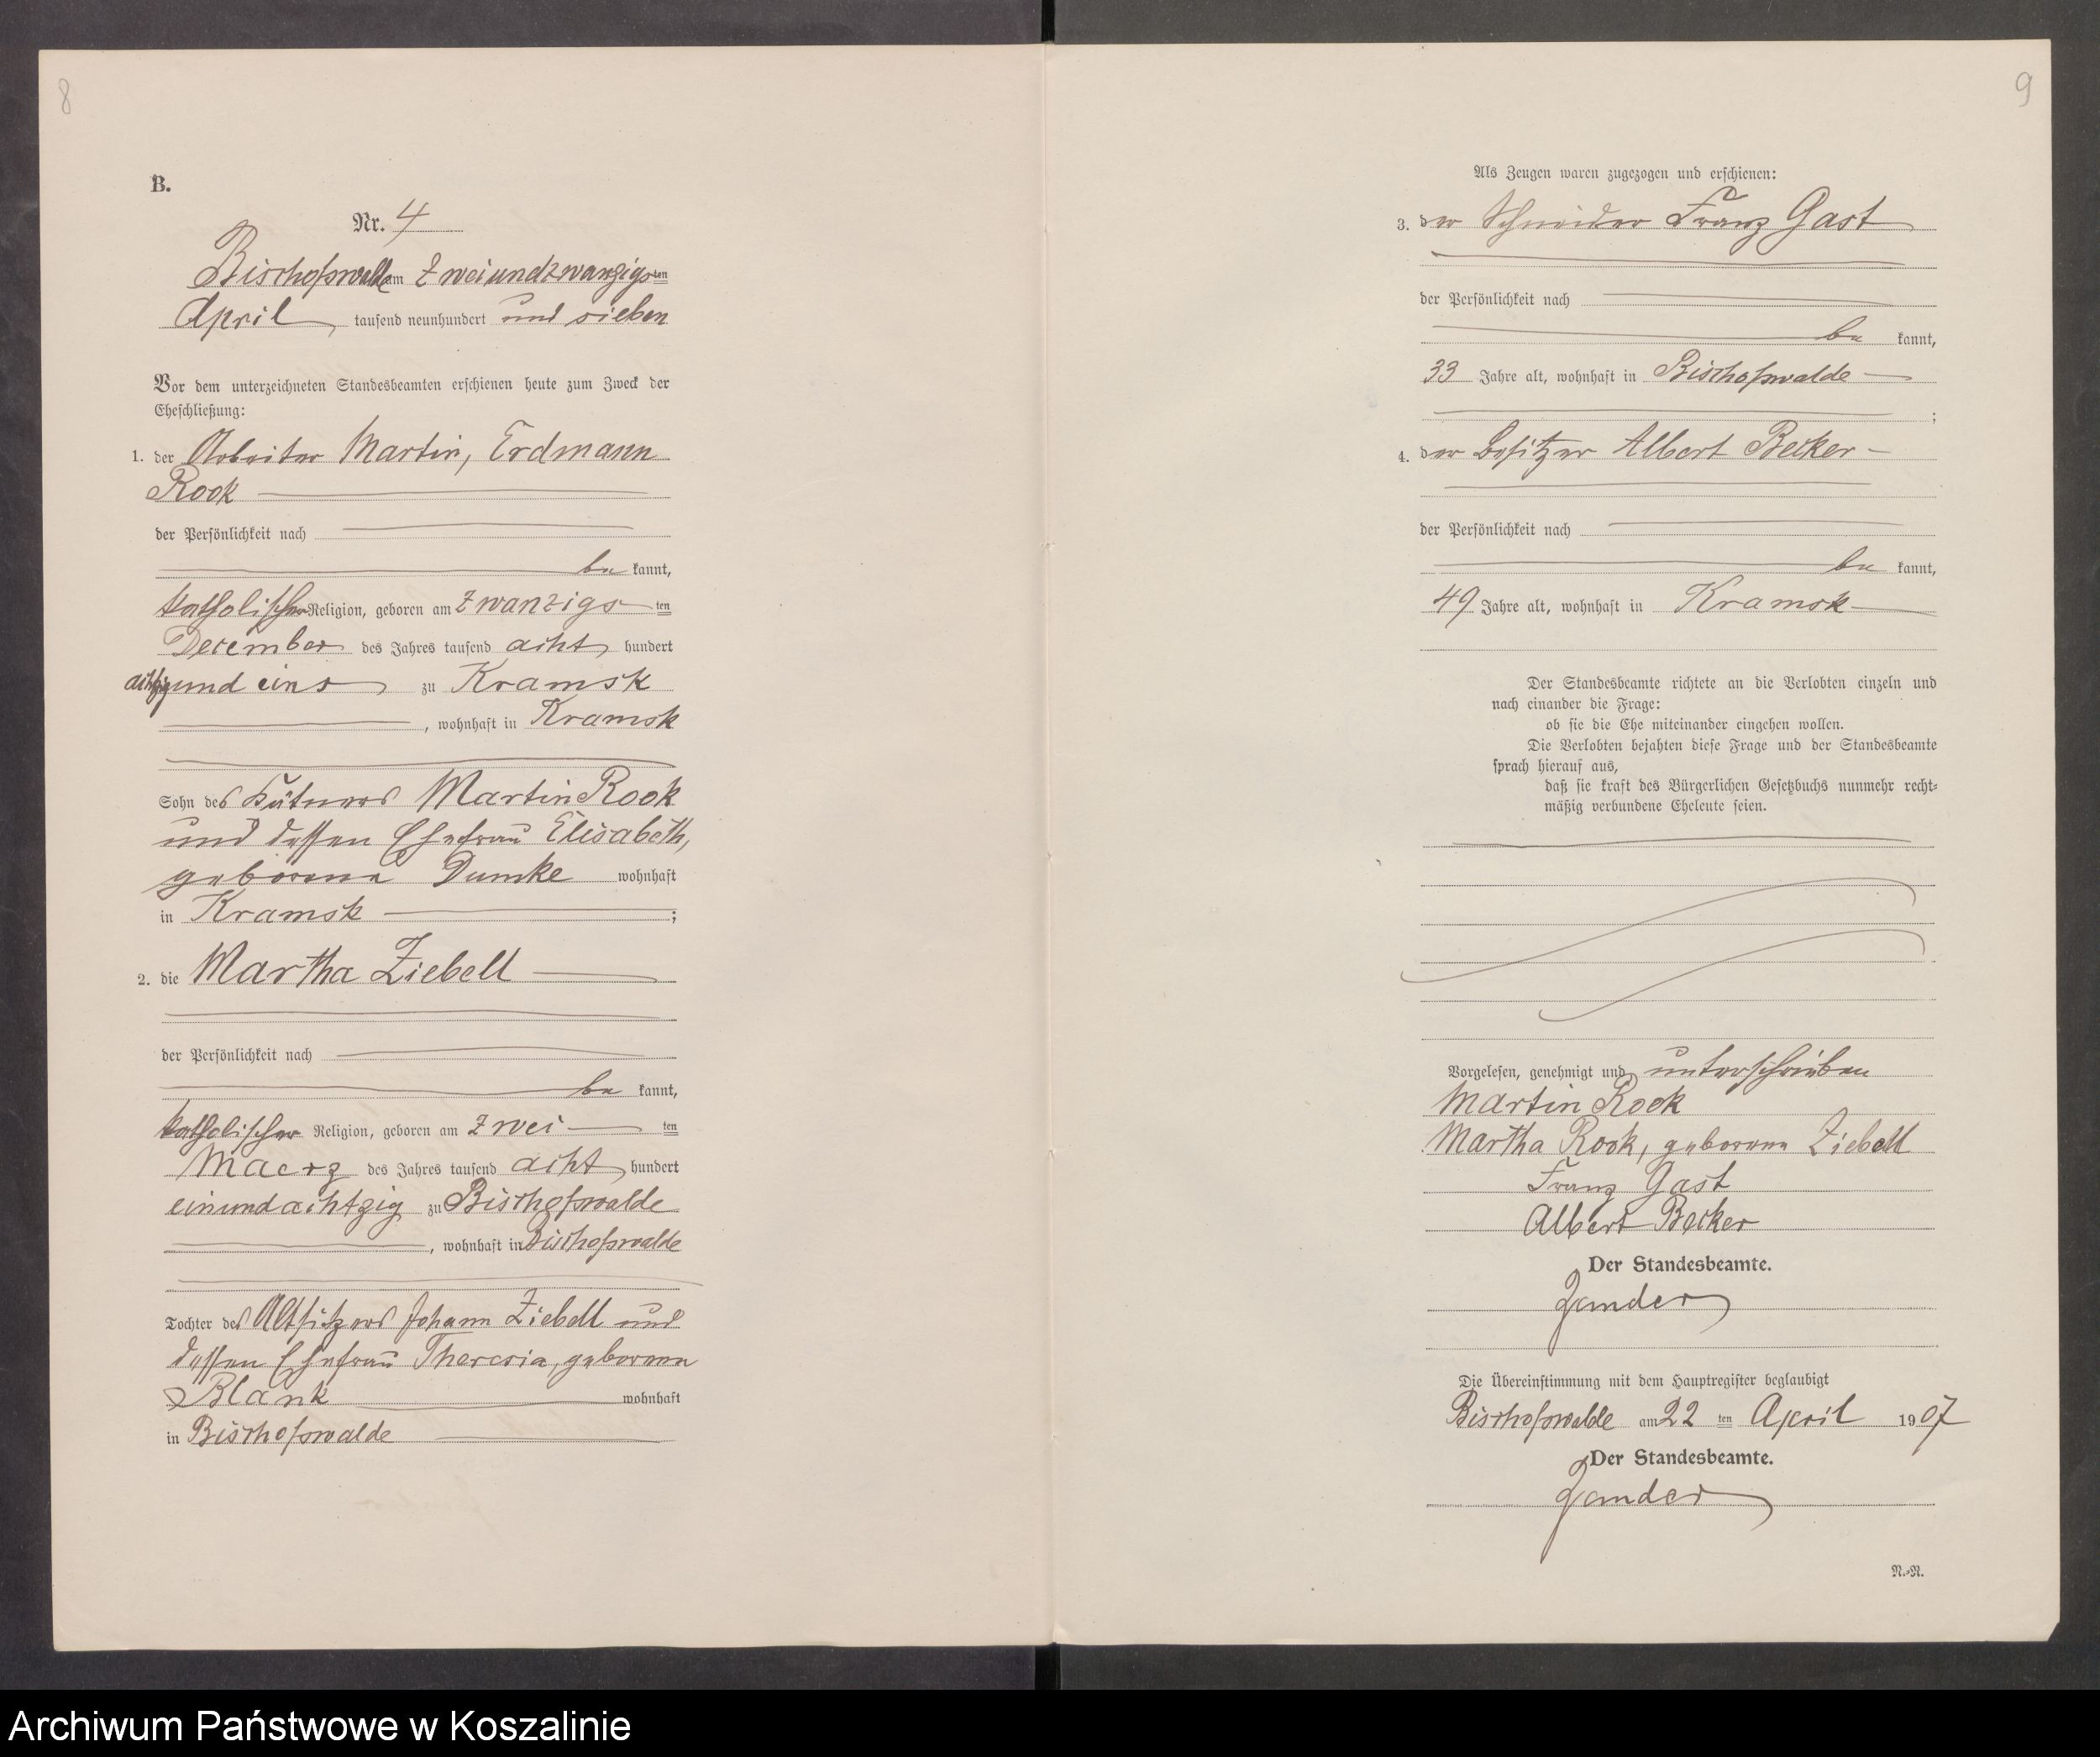 8
B.
Nr. 4
Bischofswalde am Zweiundzwanzigsten
April tausend neunhundert und sieben
Vor dem unterzeichneten Standesbeamten erschienen heute zum Zweck der
Eheschließung:
1. der Arbeiter Martin, Erdmann
Rook
der Persönlichkeit nach
be kannt,
katholischer Religion, geboren am zwanzigsten
December des Jahres tausend acht hundert
achtzig und eins zu Kramsk
, wohnhaft in Kramsk
Sohn des Kätners Martin Rook
und dessen Ehefrau Elisabeth,
geborene Dumke wohnhaft
in Kramsk ;
2. die Martha Ziebell
der Persönlichkeit nach
be kannt,
katholischer Religion, geboren am zwei ten
Maerz des Jahres tausend acht hundert
einundachtzig zu Bischofswalde
, wohnhaft in Bischofswalde
Tochter des Altsitzers Johann Ziebell und
dessen Ehefrau Theresia, geborenen
Blank wohnhaft
in Bischofswalde
9
Als Zeugen waren zugezogen und erschienen:
3. der Schneider Franz Gast
der Persönlichkeit nach
be kannt,
33 Jahre alt, wohnhaft in Bischofswalde
;
4. der Besitzer Albert Becker
der Persönlichkeit nach
be kannt,
49 Jahre alt, wohnhaft in Kramsk
Der Standesbeamte richtete an die Verlobten einzeln und
nach einander die Frage:
ob sie die Ehe miteinander eingehen wollen.
Die Verlobten bejahten diese Frage und der Standesbeamte
sprach hierauf aus,
daß sie kraft des Bürgerlichen Gesetzbuchs nunmehr recht-
mäßig verbundene Eheleute seien.
Vorgelesen, genehmigt und unterschrieben
Martin Rook
Martha Rook, geborene Ziebell
Franz Gast
Albert Becker
Der Standesbeamte.
Zander
Die Übereinstimmung mit dem Hauptregister beglaubigt
Bischofswalde am 22 ten April 1907
Der Standesbeamte.
Zander
N.-N.
Archiwum Państwowe w Koszalinie